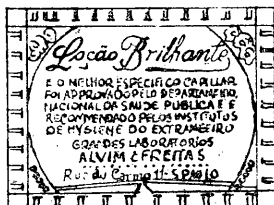 Loção Brilhante
E O MELHOR ESPECIFICO CAPILLAR
FOI APPROVADO PELO DEPARTAMENTO
NACIONAL DA SAUDE PUBLICA E E
RECOMMENDADO PELOS INSTITUTOS
DE HYGIENE DO EXTRANGEIRO
GRANDES LABORATORIOS
ALVIM & FREITAS
Rua do Carmo 11-S PAULO